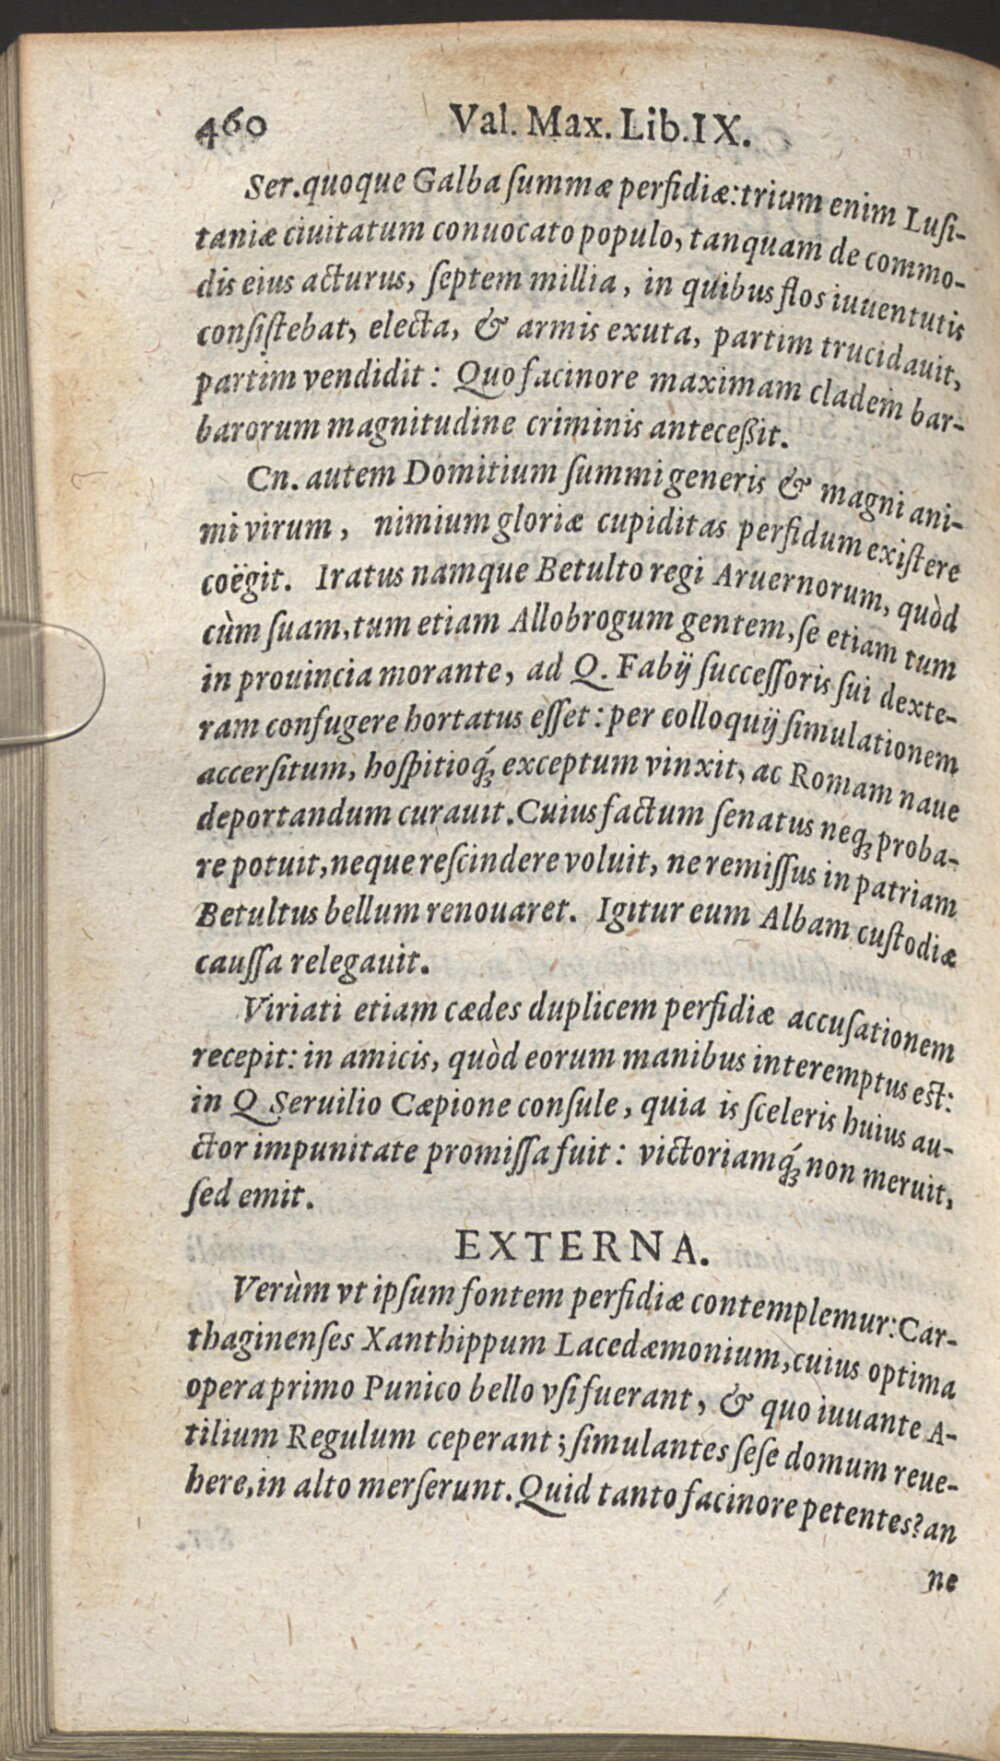 460 Val. Max. Lib. IX.
Ser. quoque Galba ſummæ perfidiæ: trium enim Luſi-
taniæ ciuitatum conuocato populo, tanquam de commo-
dis eius acturus, ſeptem millia, in quibus flos iuuentutis
conſiſtebat, electa, & armis exuta, partim trucidauit,
partim vendidit: Quo facinore maximam cladem bar-
barorum magnitudine criminis anteceßit.
Cn. autem Domitium ſummi generis & magni ani-
mi virum, nimium gloriæ cupiditas perfidum exiſtere
coëgit. Iratus namque Betulto regi Aruernorum, quòd
cùm ſuam, tum etiam Allobrogum gentem, ſe etiam tum
in prouincia morante, ad Q. Fabij ſucceſſoris ſui dexte-
ram confugere hortatus eſſet: per colloquij ſimulationem
accerſitum, hoſpitioq́; exceptum vinxit, ac Romam naue
deportandum curauit. Cuius factum ſenatus neq; proba-
re potuit, neque reſcindere voluit, ne remiſſus in patriam
Betultus bellum renouaret. Igitur eum Albam cuſtodiæ
cauſſa relegauit.
Viriati etiam cædes duplicem perfidiæ accuſationem
recepit: in amicis, quòd eorum manibus interemptus eſt:
in Q Seruilio Cæpione conſule, quia is ſceleris huius au-
ctor impunitate promiſſa fuit: victoriamq́; non meruit,
ſed emit.
EXTERNA.
Verùm vt ipſum fontem perfidiæ contemplemur: Car-
thaginenſes Xanthippum Lacedæmonium, cuius optima
opera primo Punico bello vſi fuerant, & quo iuuante A-
tilium Regulum ceperant; ſimulantes ſeſe domum reue-
here, in alto merſerunt. Quid tanto facinore petentes? an
ne